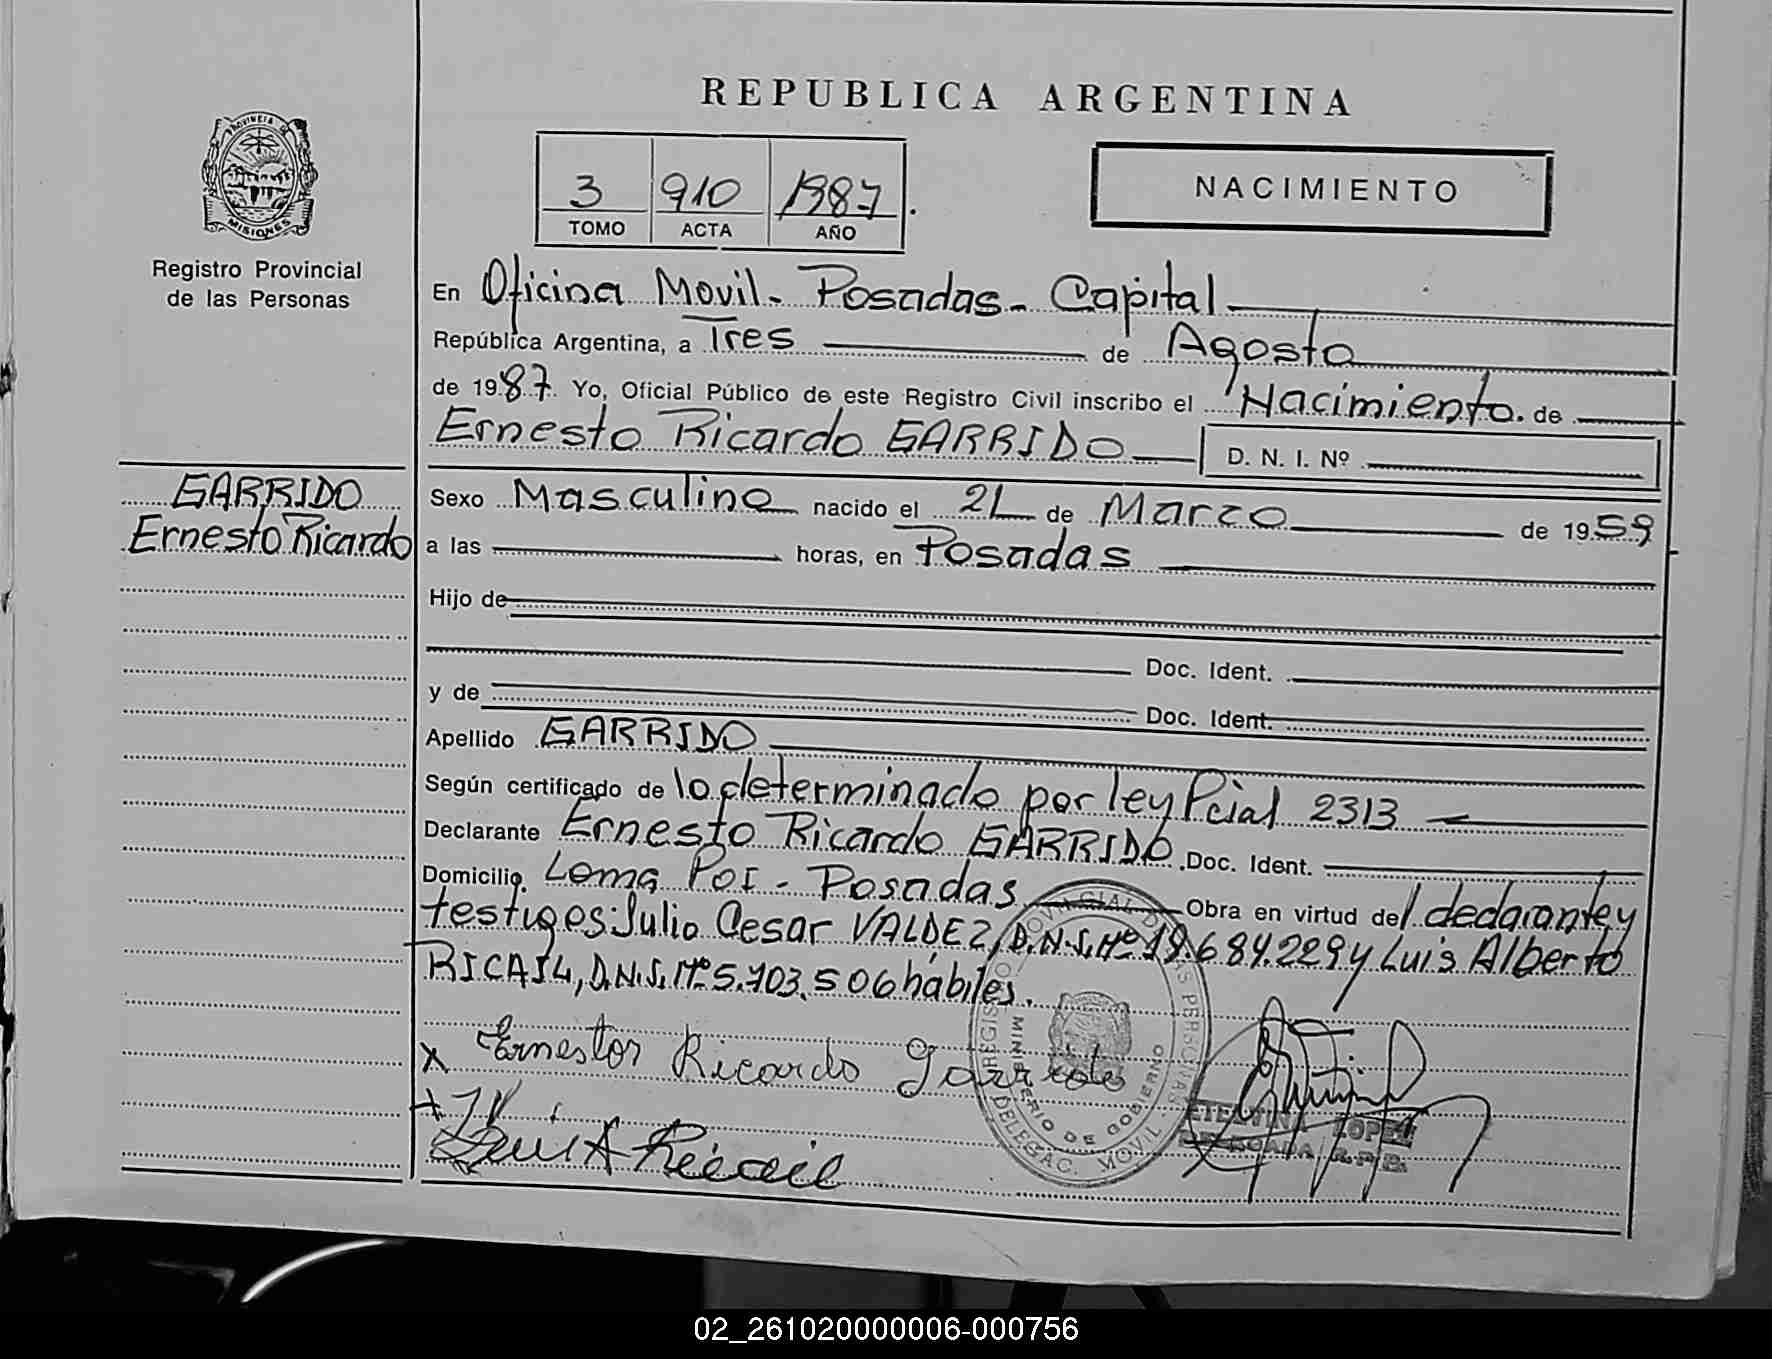 REPUBLICA ARGENTINA
PROVINCIA DE
MISIONES
Registro Provincial
de las Personas
3 910 1987
TOMO ACTA AÑO
NACIMIENTO
En Oficina Movil - Posadas - Capital
República Argentina, a Tres de Agosto
de 1987 Yo, Oficial Público de este Registro Civil inscribo el Nacimiento de
Ernesto Ricardo GARRIDO D. N. I. Nº
GARRIDO
Ernesto Ricardo
Sexo Masculino nacido el 21 de Marzo de 1959
a las horas, en Posadas
Hijo de
Doc. Ident.
y de Doc. Ident.
Apellido GARRIDO
Según certificado de lo determinado por ley Pcial 2313
Declarante Ernesto Ricardo GARRIDO Doc. Ident.
Domicilio Loma Poi - Posadas Obra en virtud del declarante y
testigos: Julio Cesar VALDEZ, D.N.I. Nº 18.684.229 y Luis Alberto
RICAIL, D.N.I. Nº 5.703.506 hábiles.
x Ernestor Ricardo Garrido
Luis A Ricail
MINISTERIO DE GOBIERNO
DELEGAC. MOVIL
ETELVINA LOPEZ
DELEGADA R.P.P.
02_261020000006-000756